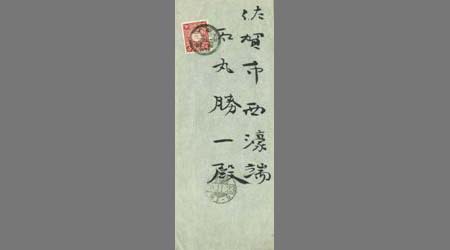 佐賀市西濠端
石丸勝一殿